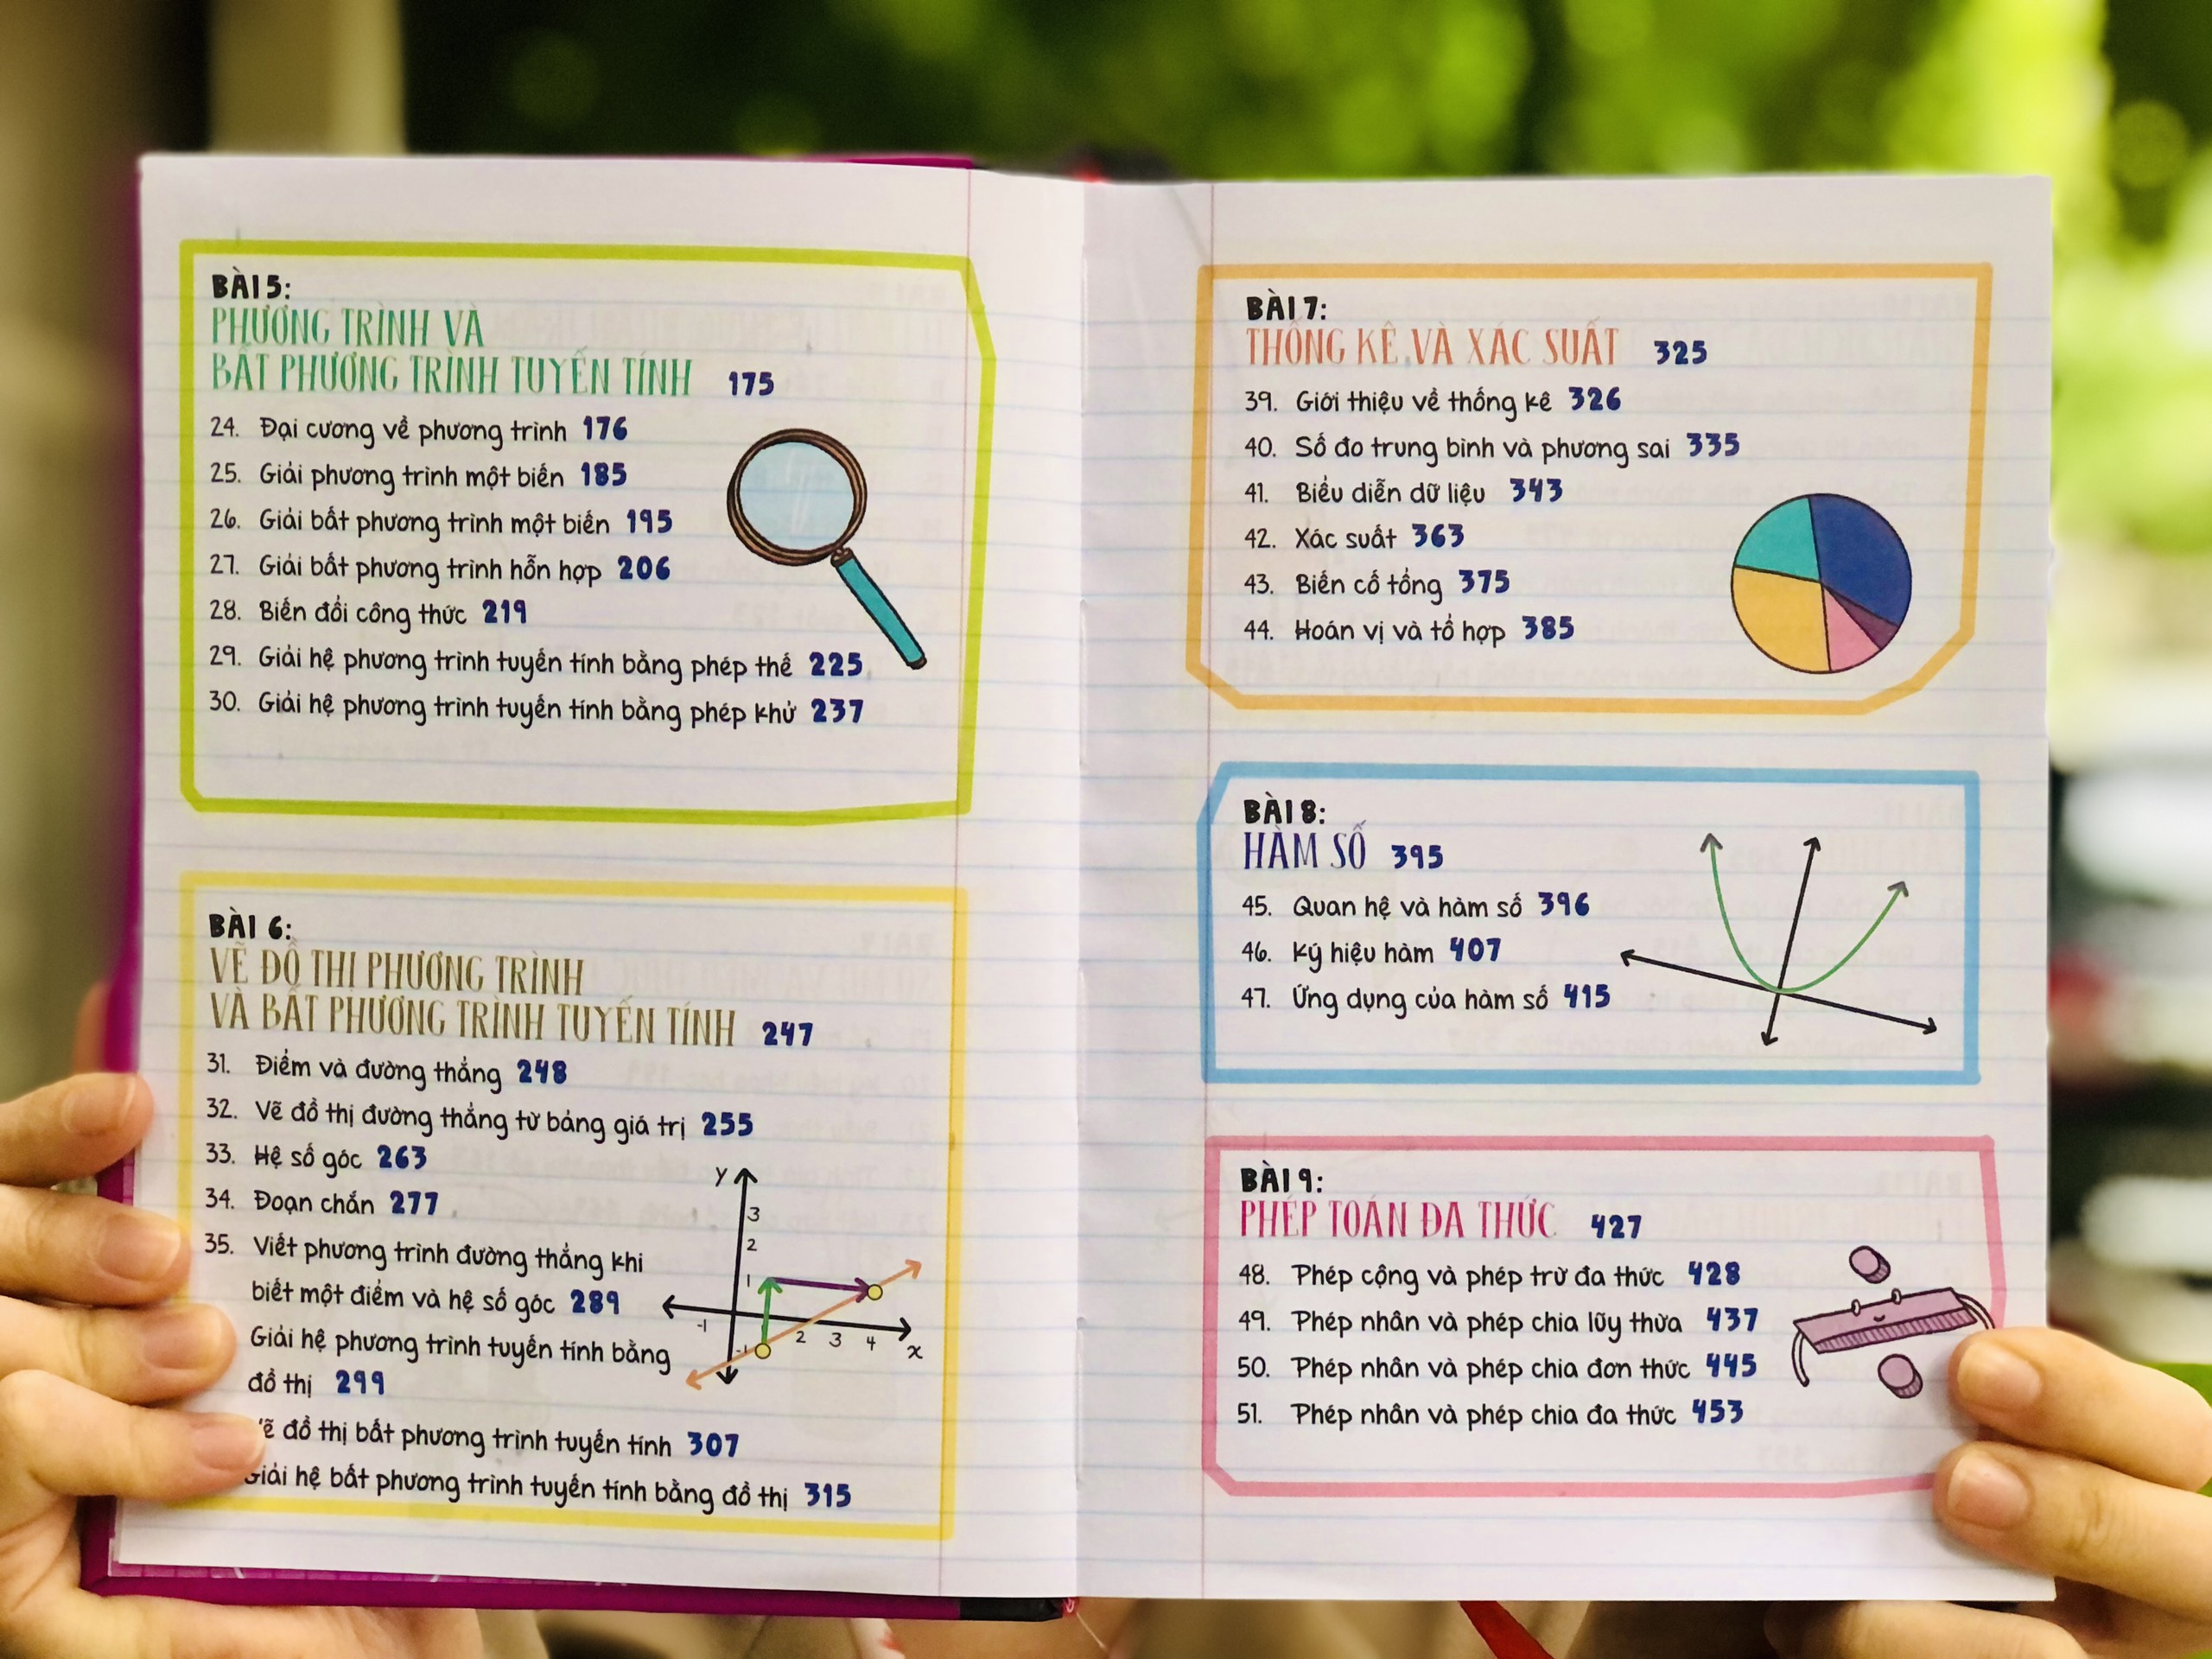 BÀI 5:
PHƯƠNG TRÌNH VÀ
BẤT PHƯƠNG TRÌNH TUYẾN TÍNH 175
24. Đại cương về phương trình 176
25. Giải phương trình một biến 185
26. Giải bất phương trình một biến 195
27. Giải bất phương trình hỗn hợp 206
28. Biến đổi công thức 219
29. Giải hệ phương trình tuyến tính bằng phép thế 225
30. Giải hệ phương trình tuyến tính bằng phép khử 237
BÀI 6:
VẼ ĐỒ THỊ PHƯƠNG TRÌNH
VÀ BẤT PHƯƠNG TRÌNH TUYẾN TÍNH 247
31. Điểm và đường thẳng 248
32. Vẽ đồ thị đường thẳng từ bảng giá trị 255
33. Hệ số góc 263
34. Đoạn chắn 277
35. Viết phương trình đường thẳng khi
biết một điểm và hệ số góc 289
Giải hệ phương trình tuyến tính bằng
đồ thị 299
đồ thị bất phương trình tuyến tính 307
Giải hệ bất phương trình tuyến tính bằng đồ thị 315
y
3
2
1
-1 2 3 4 x
-1
BÀI 7:
THỐNG KÊ VÀ XÁC SUẤT 325
39. Giới thiệu về thống kê 326
40. Số đo trung bình và phương sai 335
41. Biểu diễn dữ liệu 343
42. Xác suất 363
43. Biến cố tổng 375
44. Hoán vị và tổ hợp 385
BÀI 8:
HÀM SỐ 395
45. Quan hệ và hàm số 396
46. Ký hiệu hàm 407
47. Ứng dụng của hàm số 415
BÀI 9:
PHÉP TOÁN ĐA THỨC 427
48. Phép cộng và phép trừ đa thức 428
49. Phép nhân và phép chia lũy thừa 437
50. Phép nhân và phép chia đơn thức 445
51. Phép nhân và phép chia đa thức 453